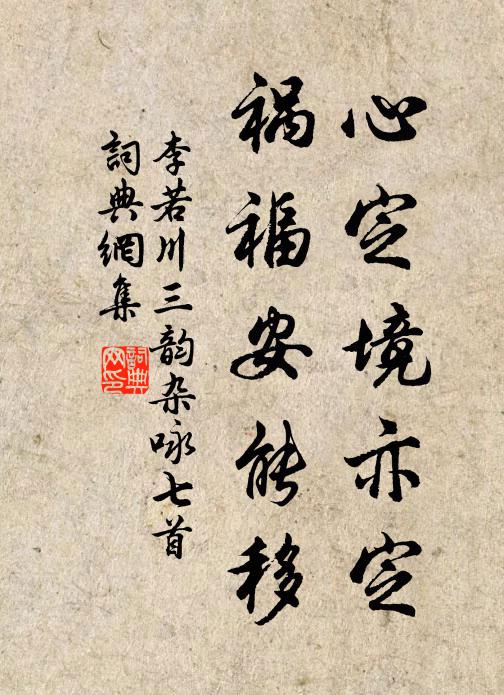 心定境亦定
祸福安能移
李若川三韵杂咏七首
詞典網集
詞典
网印